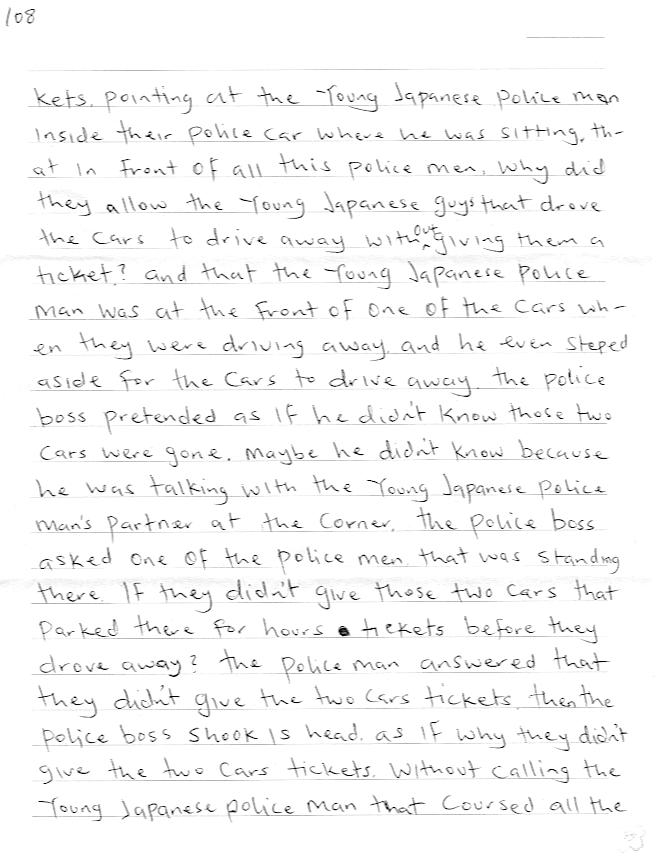 108
kets. pointing at the Young Japanese police man
inside their police car where he was sitting. th-
at in front of all this police men, why did
they allow the Young Japanese guys that drove
the cars to drive away without giving them a
ticket? and that the Young Japanese police
man was at the front of one of the cars wh-
en they were driving away. and he even steped
aside for the cars to drive away. the police
boss pretended as if he didn't know those two
cars were gone. maybe he didn't know because
he was talking with the Young Japanese police
man's partner at the corner. the police boss
asked one of the police men that was standing
there. If they didn't give those two cars that
parked there for hours tickets before they
drove away? the police man answered that
they didn't give the two cars tickets. then the
police boss shook is head. as if why they didn't
give the two cars tickets. without calling the
Young Japanese police man that coursed all the